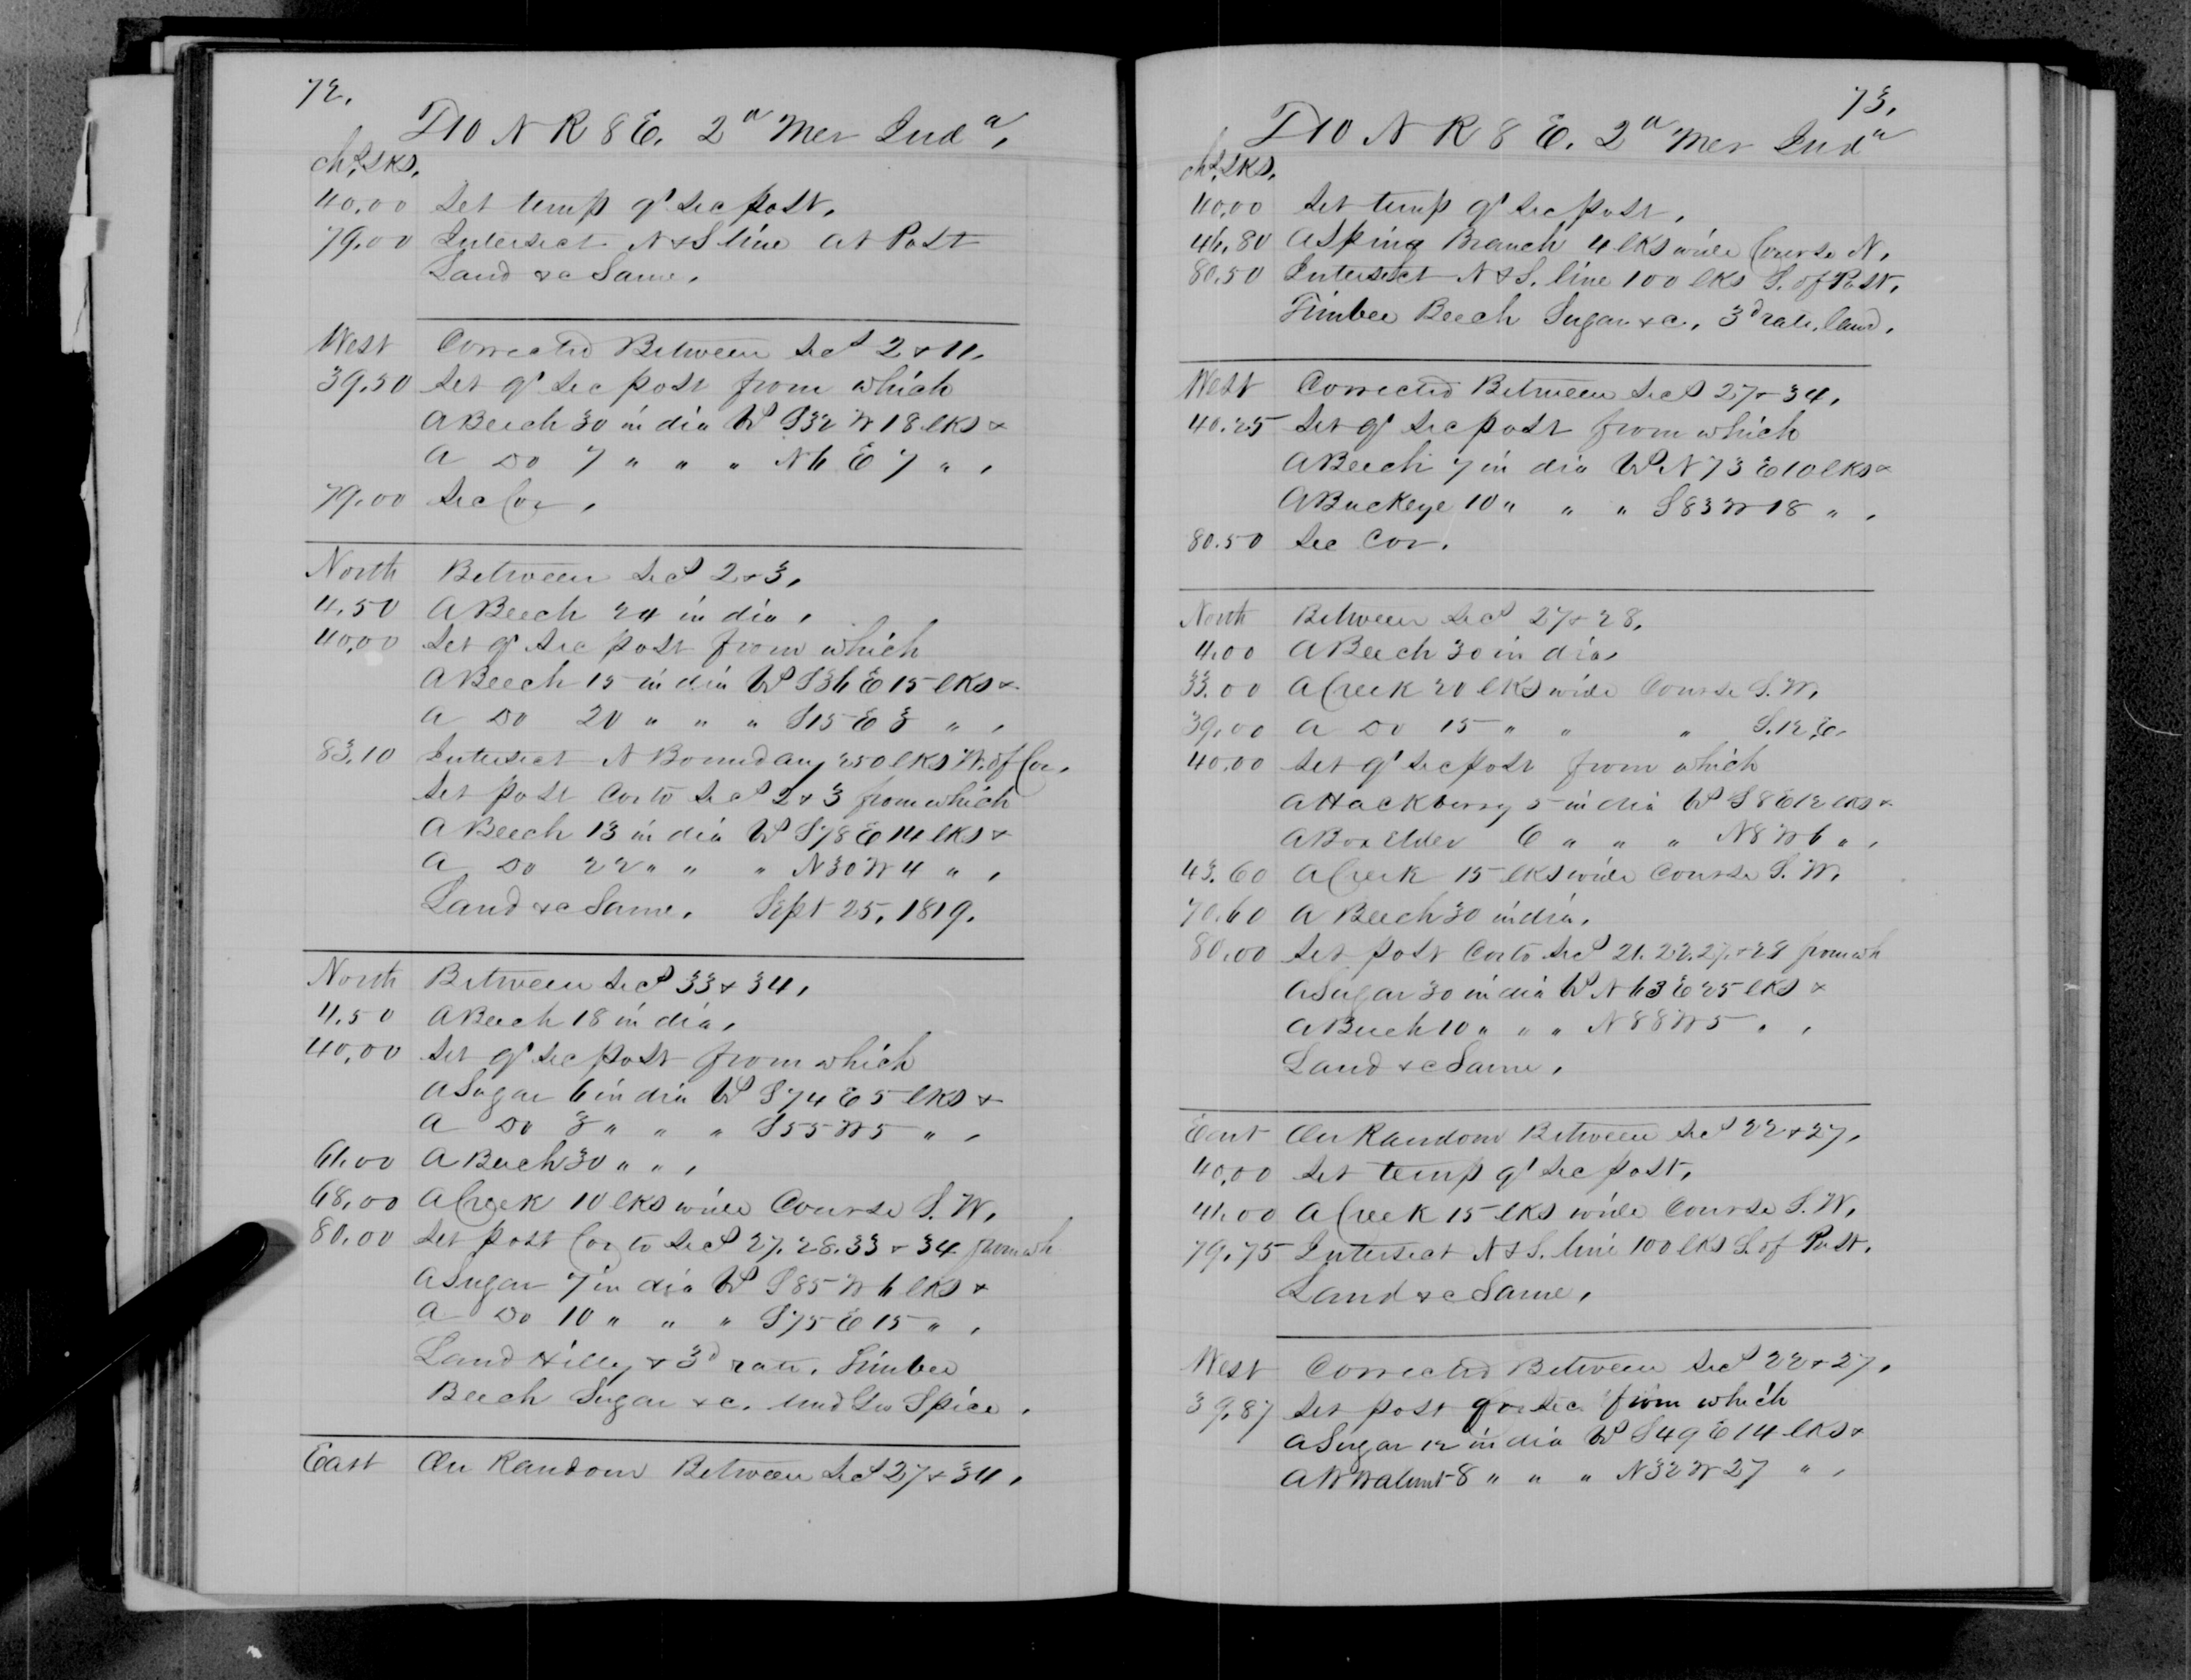 72.
T 10 N R 8 E. 2d Mer Inda.
chs. lks.
40.00 Set temp qr sec post.
79.00 Intersect N & S line at Post
Land &c Same.
West Corrected Between Secs 2 & 11.
39.50 Set qr sec post from which
A Beech 30 in dia brs S32 W 18 lks &
A Do 7 " " " N 6 E 7 " .
79.00 Sec Cor.
North Between Secs 2 & 3.
4.50 A Beech 24 in dia.
40.00 Set qr sec post from which
A Beech 15 in dia brs S36 E 15 lks &
A Do 20 " " " S15 E 3 " .
83.10 Intersect N Boundary 250 lks W. of Cor.
Set post Cor to Secs 2 & 3 from which
A Beech 13 in dia brs S78 E 14 lks &
A Do 22 " " " N30 W 4 " .
Land &c Same. Sept 25, 1819.
North Between Secs 33 & 34.
4.50 A Beech 18 in dia.
40.00 Set qr sec post from which
A Sugar 6 in dia brs S74 E 5 lks &
A Do 3 " " " S55 W 5 " .
61.00 A Beech 30 " " .
68.00 A Creek 10 lks wide Course S.W.
80.00 Set post Cor to Secs 27. 28. 33 & 34 from wh
A Sugar 7 in dia brs S85 W 6 lks &
A Do 10 " " " S75 E 15 " .
Land Hilly & 3d rate. Timber
Beech Sugar &c. Und Gr Spice.
East On Random Between Secs 27 & 34.
73.
T 10 N R 8 E. 2d Mer Inda
chs. lks.
40.00 Set temp qr sec post.
46.80 A Spring Branch 4 lks wide Course N.
80.50 Intersect N & S. line 100 lks S. of Post.
Timber Beech Sugar &c. 3d rate land.
West Corrected Between Secs 27 & 34.
40.25 Set qr sec post from which
A Beech 7 in dia brs N 73 E 10 lks &
A Buckeye 10 " " " S83 W 18 " .
80.50 Sec Cor.
North Between Secs 27 & 28.
4.00 A Beech 30 in dia.
33.00 A Creek 20 lks wide Course S.W.
39.00 A Do 15 " " " S.12.E.
40.00 Set qr sec post from which
A Hackberry 5 in dia brs S8 E 12 lks &
A Box Elder 6 " " " N8 W 6 " .
43.60 A Creek 15 lks wide Course S.W.
70.60 A Beech 30 in dia.
80.00 Set post Cor to Secs 21. 22. 27. & 28 from wh
A Sugar 30 in dia brs N 63 E 25 lks &
A Beech 10 " " " N88 W 5 " .
Land &c Same.
East On Random Between Secs 22 & 27.
40.00 Set temp qr sec post.
41.00 A Creek 15 lks wide Course S.W.
79.75 Intersect N & S. line 100 lks S. of Post.
Land &c Same.
West Corrected Between Secs 22 & 27.
39.87 Set post qr sec from which
A Sugar 12 in dia brs S49 E 14 lks &
A W Walnut 8 " " " N32 W 27 " .